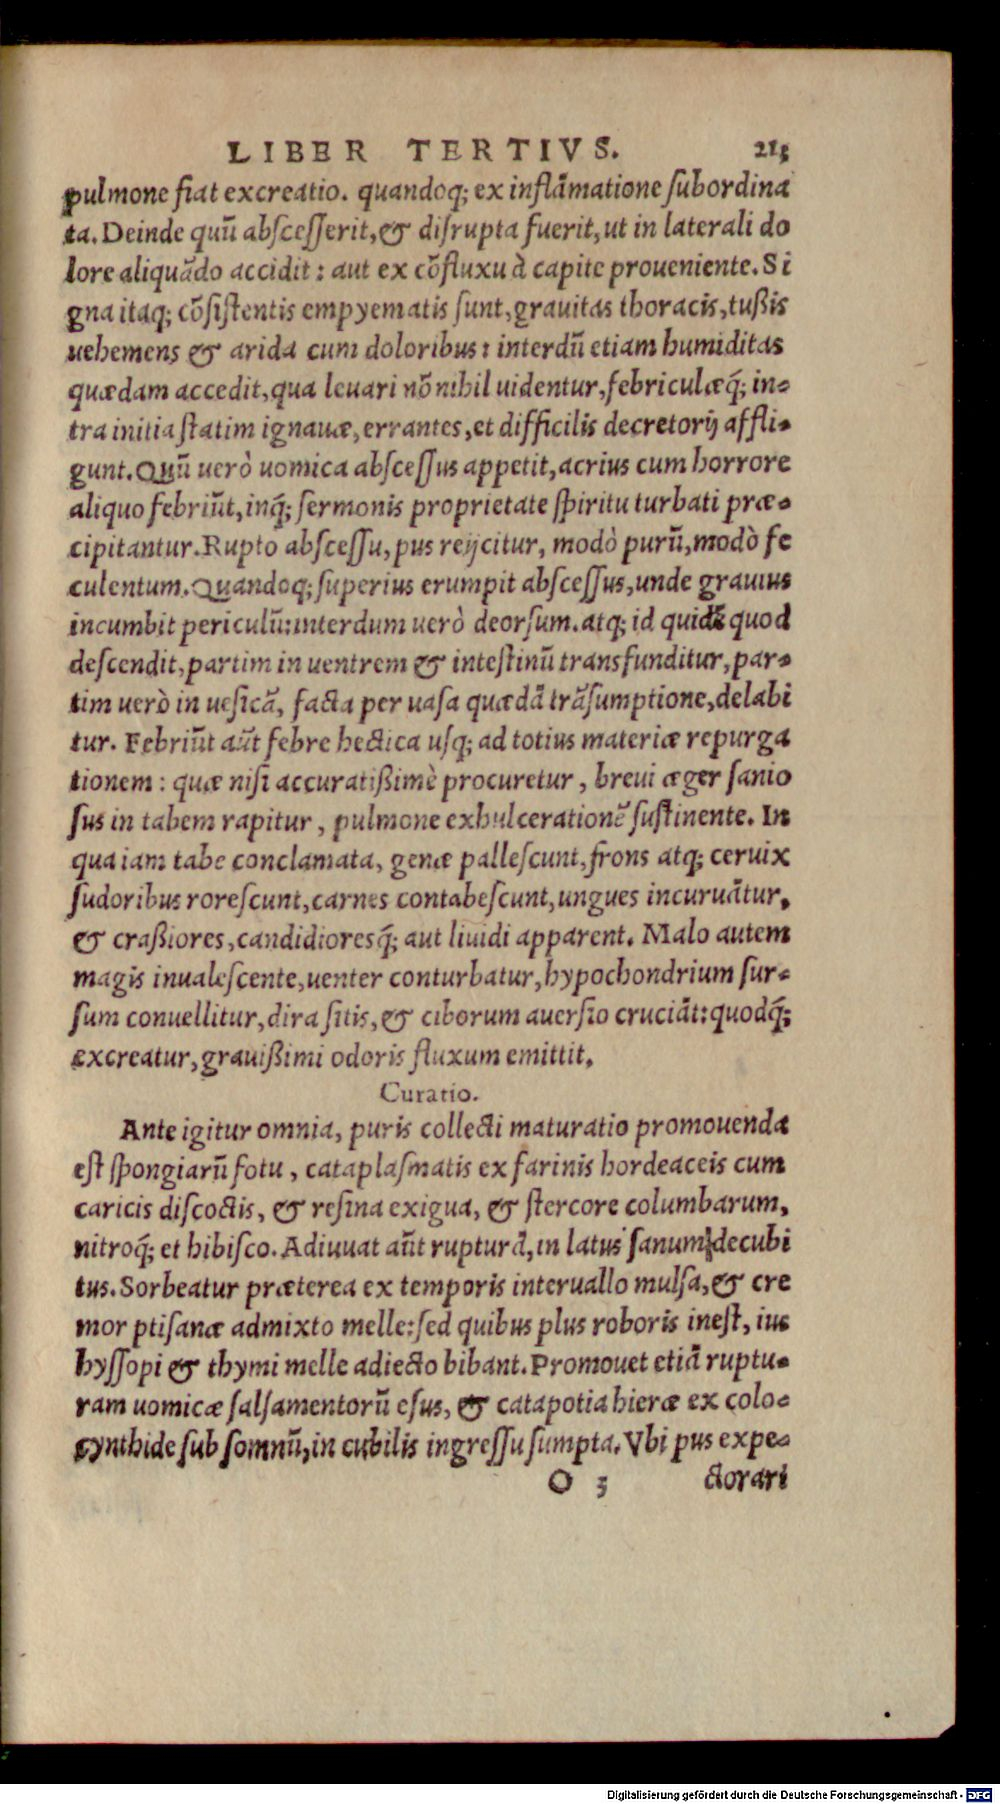 LIBER TERTIVS. 213
pulmone fiat excreatio. quandoq; ex inflāmatione ſubordina
ta. Deinde quū abſceſſerit, & diſrupta fuerit, ut in laterali do
lore aliquādo accidit: aut ex cōfluxu à capite proueniente. Si
gna itaq; cōſiſtentis empyematis ſunt, grauitas thoracis, tußis
uehemens & arida cum doloribus: interdū etiam humiditas
quædam accedit, qua leuari nōnihil uidentur, febriculæq́; in-
tra initia ſtatim ignauæ, errantes, et difficilis decretorij affli-
gunt. Quū uerò uomica abſceſſus appetit, acrius cum horrore
aliquo febriūt, inq́; ſermonis proprietate ſpiritu turbati præ-
cipitantur. Rupto abſceſſu, pus reijcitur, modò purū, modò fe
culentum. Quandoq; ſuperius erumpit abſceſſus, unde grauius
incumbit periculū: interdum uerò deorſum. atq; id quidē quod
deſcendit, partim in uentrem & inteſtinū transfunditur, par-
tim uerò in ueſicā, facta per uaſa quædā trāſumptione, delabi
tur. Febriūt aūt febre hectica uſq; ad totius materiæ repurga
tionem: quæ niſi accuratißimè procuretur, breui æger ſanio
ſus in tabem rapitur, pulmone exhulcerationē ſuſtinente. In
qua iam tabe conclamata, genæ palleſcunt, frons atq; ceruix
ſudoribus roreſcunt, carnes contabeſcunt, ungues incuruātur,
& craßiores, candidioresq́; aut liuidi apparent. Malo autem
magis inualeſcente, uenter conturbatur, hypochondrium ſur-
ſum conuellitur, dira ſitis, & ciborum auerſio cruciāt: quodq́;
excreatur, grauißimi odoris fluxum emittit.
Curatio.
Ante igitur omnia, puris collecti maturatio promouenda
eſt ſpongiarū fotu, cataplaſmatis ex farinis hordeaceis cum
caricis diſcoctis, & reſina exigua, & ſtercore columbarum,
nitroq́; et hibiſco. Adiuuat aūt rupturā, in latus ſanum decubi
tus. Sorbeatur præterea ex temporis interuallo mulſa, & cre
mor ptiſanæ admixto melle: ſed quibus plus roboris ineſt, ius
hyſſopi & thymi melle adiecto bibant. Promouet etiā ruptu-
ram uomicæ ſalſamentorū eſus, & catapotia hieræ ex colo-
cynthide ſub ſomnū, in cubilis ingreſſu ſumpta. Vbi pus expe-
O 3 ctorari
Digitalisierung gefördert durch die Deutsche Forschungsgemeinschaft - DFG